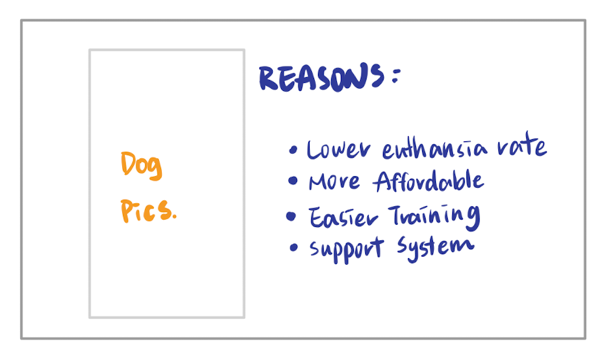 Dog
Pics.
REASONS:
• Lower euthansia rate
• More Affordable
• Easier Training
• Support System